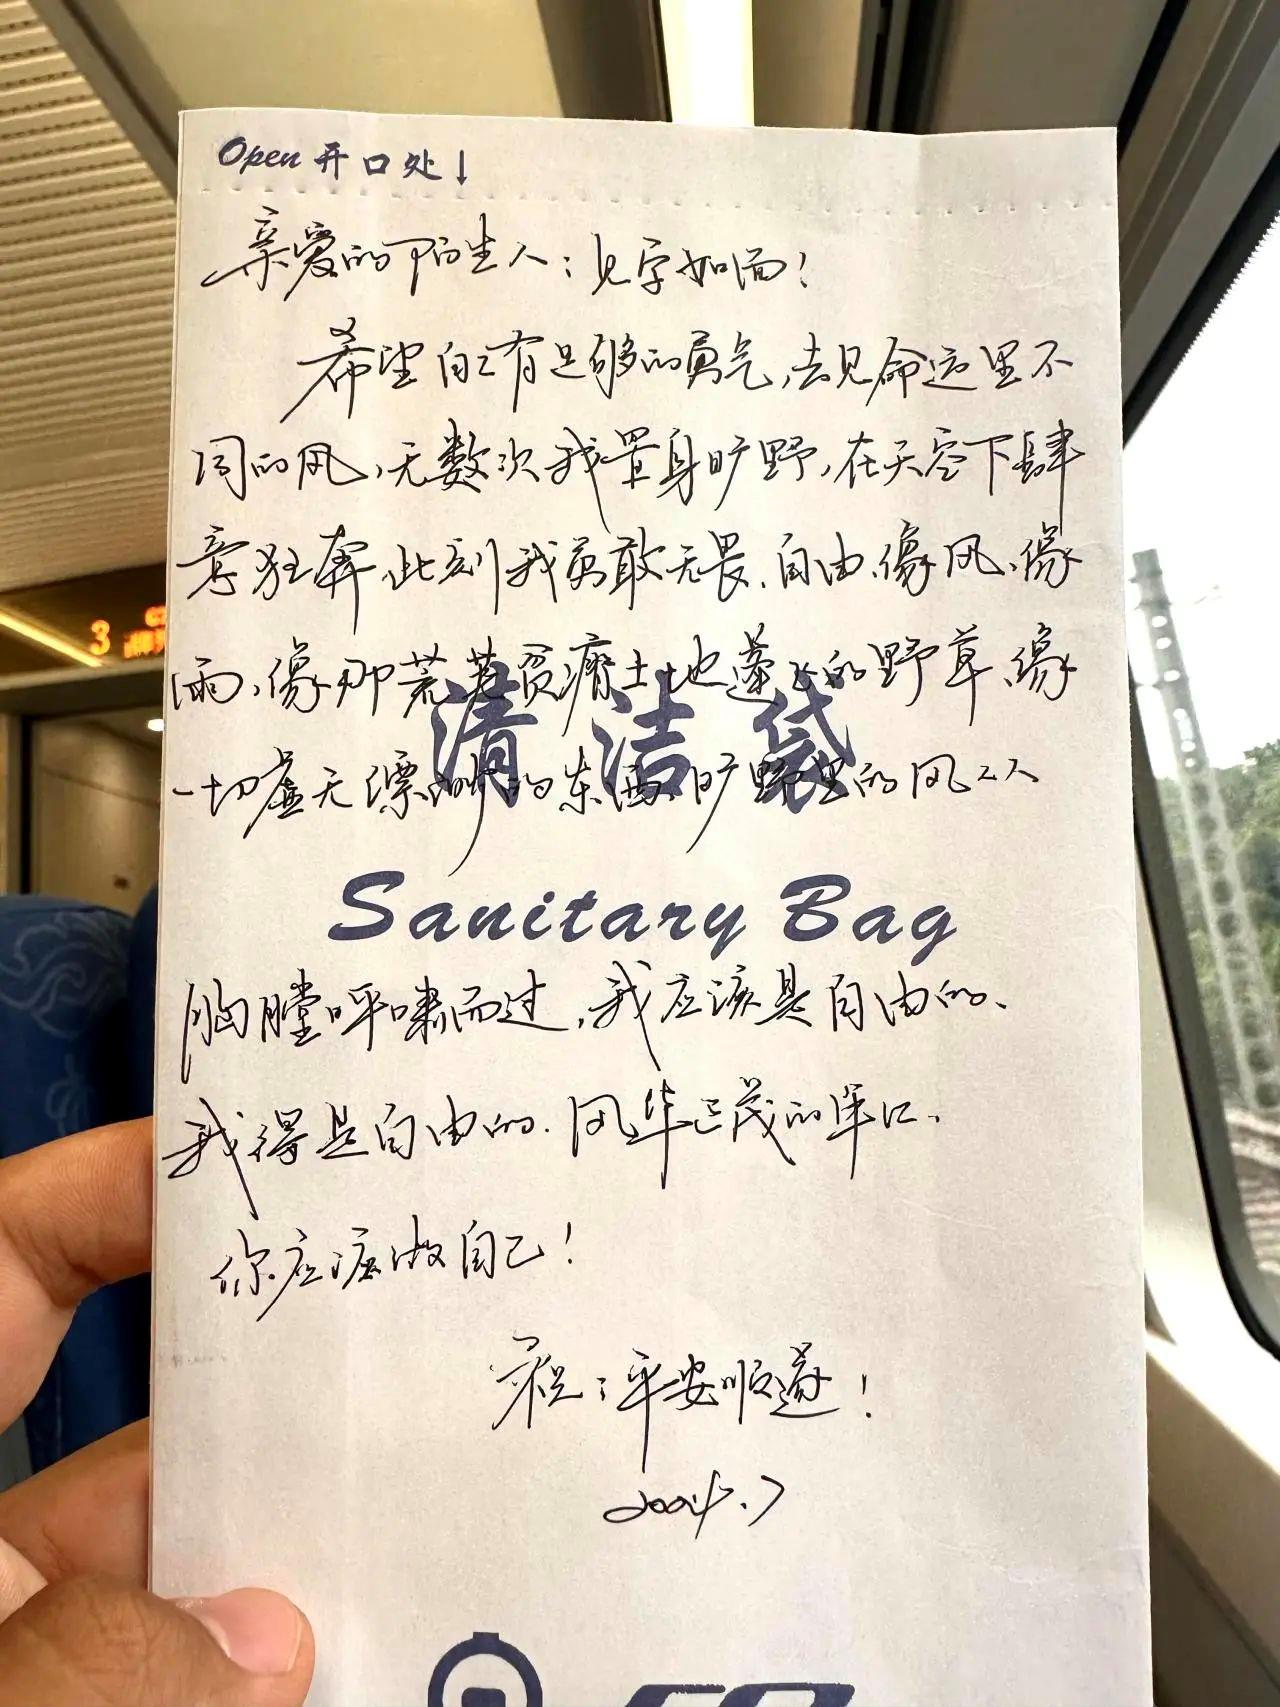 Open 开口处↓
亲爱的陌生人：见字如面！
希望自己有足够的勇气，去见命运里不
同的风，无数次我置身旷野，在天空下肆
意狂奔，此刻我勇敢无畏、自由、像风、像
雨、像那荒芜贫瘠土地蓬飞的野草、像
一切虚无漂渺的东西，旷野里的风从
清洁袋
Sanitary Bag
胸膛呼啸而过，我应该是自由的、
我得是自由的、风华正茂的年纪、
你应该做自己！
祝：平安顺遂！
3